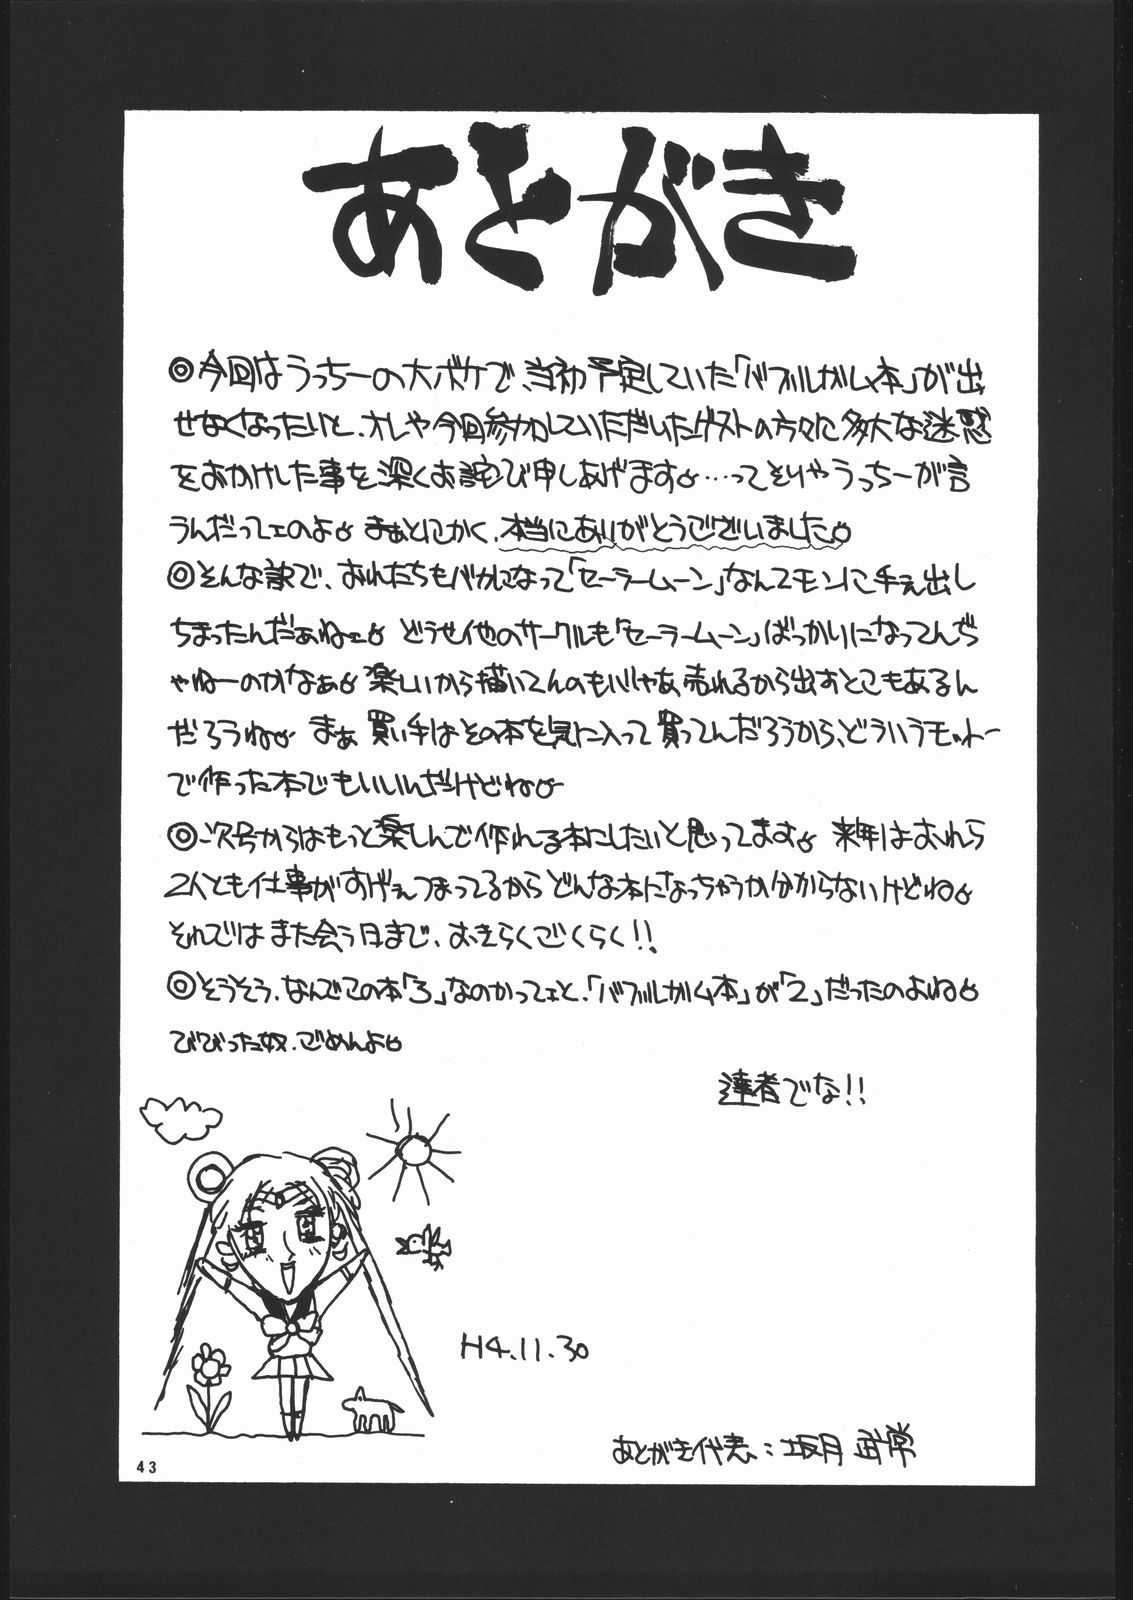 あとがき
◎今回はうっちーの大ボケで、当初予定していた「バブルガム本」が出
せなくなったいと、オレや今回参加していただいたゲストの方々に多大な迷惑
をおかけした事を深くお詫び申しあげます。…ってそりゃうっちーが言
うんだってェのよ。まぁとにかく、本当にありがとうございました。
◎そんな訳で、おれたちもバカになって「セーラームーン」なんてモンに手ぇ出し
ちまったんだぁねェ。どうせ他のサークルも「セーラームーン」ばっかりになってんぢ
ゃねーのかなぁ。楽しいから描いてんのもいりゃあ売れるから出すとこもあるん
だろうね。まぁ買い手はその本を気に入って買ってんだろうから、どういうモットー
で作った本でもいいんだけどね。
◎次号からはもっと楽しんで作れる本にしたいと思ってます。来年はおれら
2人とも仕事がすげぇつまってるからどんな本になっちゃうか分からないけどね。
それではまた会う日まで、おきらくごくらく!!
◎そうそう、なんでこの本「3」なのかってェと、「バブルガム本」が「2」だったのよね。
びびった奴、ごめんよ。
達者でな!!
H4.11.30
あとがき代表:坂月 武常
43